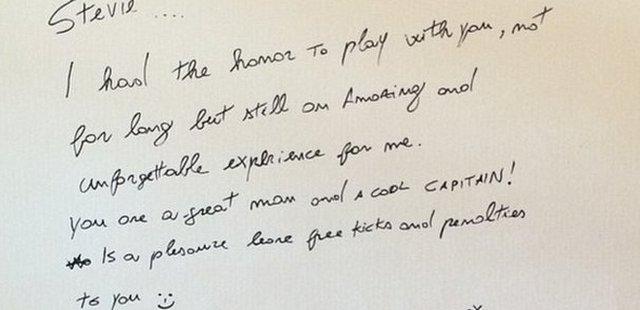 Stevie ....
I had the honor To play with you, not
for long but still an Amazing and
unforgettable experience for me.
you are a great man and a cool CAPITAIN!
Is a pleasure leave free kicks and penalties
to you :)